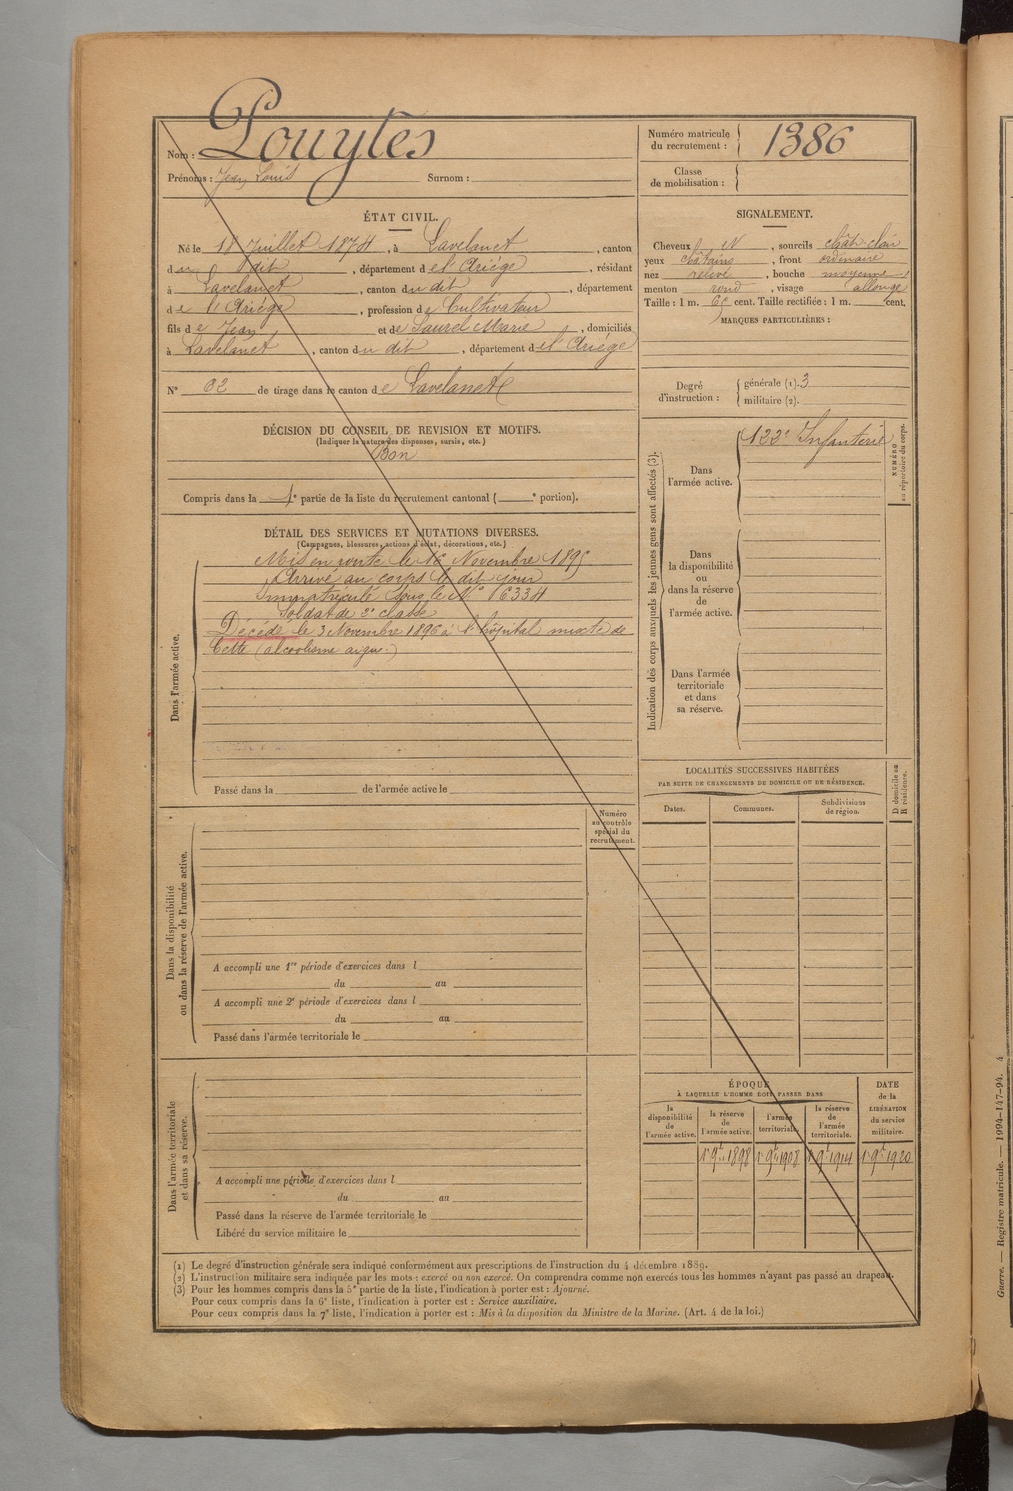 Nom : Pouytès
Prénoms : Jean Louis Surnom :
ÉTAT CIVIL.
Né le 18 Juillet 1874, à Lavelanet, canton
du dit, département de l'Ariège, résidant
à Lavelanet, canton du dit, département
de l'Ariège, profession de Cultivateur
fils de Jean et de Saurel Marie, domiciliés
à Lavelanet, canton du dit, département de l'Ariège
N° 82 de tirage dans le canton de Lavelanet
DÉCISION DU CONSEIL DE REVISION ET MOTIFS.
(Indiquer la nature des dispenses, sursis, etc.)
Bon
Compris dans la 1e partie de la liste du recrutement cantonal ( e portion).
DÉTAIL DES SERVICES ET MUTATIONS DIVERSES.
(Campagnes, blessures, actions d'éclat, décorations, etc.)
Dans l'armée active.
Mis en route le 16 Novembre 1895
Arrivé au corps le dit jour
Immatriculé sous le N° 6334
Soldat de 2e classe
Décédé le 3 Novembre 1896 à l'hôpital mixte de
Cette (alcoolisme aigu.)
Passé dans la de l'armée active le
Numéro
au contrôle
spécial du
recrutement.
Dans la disponibilité
ou dans la réserve de l'armée active.
A accompli une 1re période d'exercices dans l
du au
A accompli une 2e période d'exercices dans l
du au
Passé dans l'armée territoriale le
Dans l'armée territoriale
et dans sa réserve.
A accompli une période d'exercices dans l
du au
Passé dans la réserve de l'armée territoriale le
Libéré du service militaire le
Numéro matricule
du recrutement : 1386
Classe
de mobilisation :
SIGNALEMENT.
Cheveux N, sourcils chât-clair
yeux châtains, front ordinaire
nez relevé, bouche moyenne
menton rond, visage allongé
Taille : 1 m. 60 cent. Taille rectifiée : 1 m. cent.
MARQUES PARTICULIÈRES :
Degré
d'instruction :
générale (1). 3
militaire (2).
Indication des corps auxquels les jeunes gens sont affectés (3).
Dans
l'armée active.
122e Infanterie
NUMÉRO
au répertoire du corps.
Dans
la disponibilité
ou
dans la réserve
de
l'armée active.
Dans l'armée
territoriale
et dans
sa réserve.
LOCALITÉS SUCCESSIVES HABITÉES
PAR SUITE DE CHANGEMENTS DE DOMICILE OU DE RÉSIDENCE.
Dates. Communes. Subdivisions
de région.
D domicile ou
R résidence.
ÉPOQUE
À LAQUELLE L'HOMME DOIT PASSER DANS
la
disponibilité
de
l'armée active.
la réserve
de
l'armée active.
l'armée
territoriale.
la réserve
de
l'armée
territoriale.
DATE
de la
LIBÉRATION
du service
militaire.
1er 9bre 1898 1er 9bre 1908 1er 9bre 1914 1er 9bre 1920
(1) Le degré d'instruction générale sera indiqué conformément aux prescriptions de l'instruction du 4 décembre 1889.
(2) L'instruction militaire sera indiquée par les mots : exercé ou non exercé. On comprendra comme non exercés tous les hommes n'ayant pas passé au drapeau.
(3) Pour les hommes compris dans la 5e partie de la liste, l'indication à porter est : Ajourné.
Pour ceux compris dans la 6e liste, l'indication à porter est : Service auxiliaire.
Pour ceux compris dans la 7e liste, l'indication à porter est : Mis à la disposition du Ministre de la Marine. (Art. 4 de la loi.)
Guerre. — Registre matricule. — 1994-147-94. 4